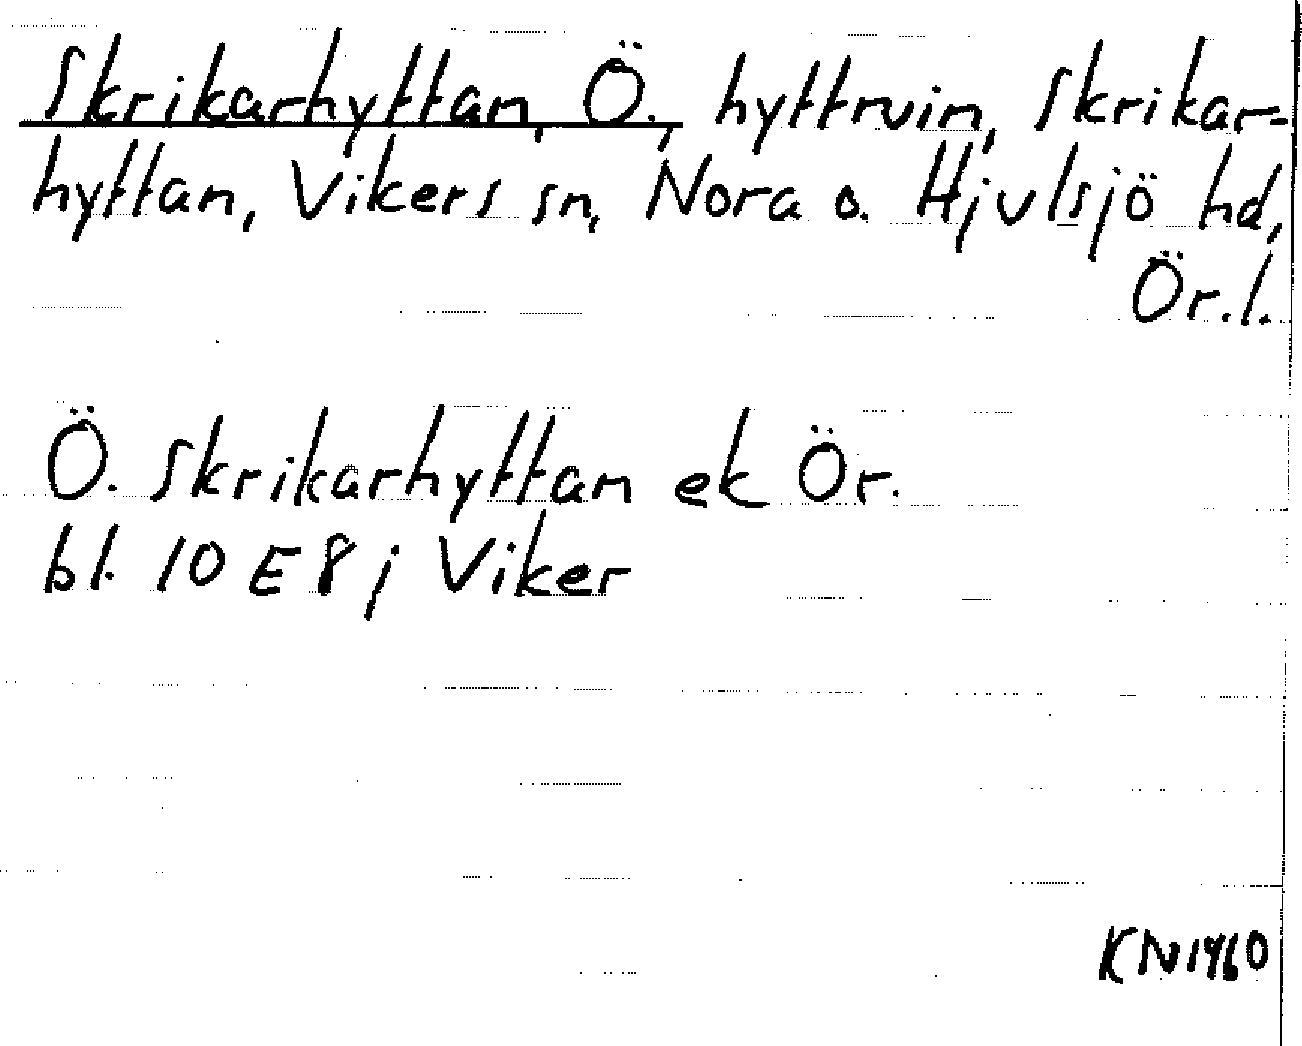 Skrikarhyttan, Ö., hyttruin, Skrikar-
hyttan, Vikers sn, Nora o. Hjulsjö hd,
Ör.l.
Ö. Skrikarhyttan ek Ör.
bl. 10 E 8 j Viker
KN1960